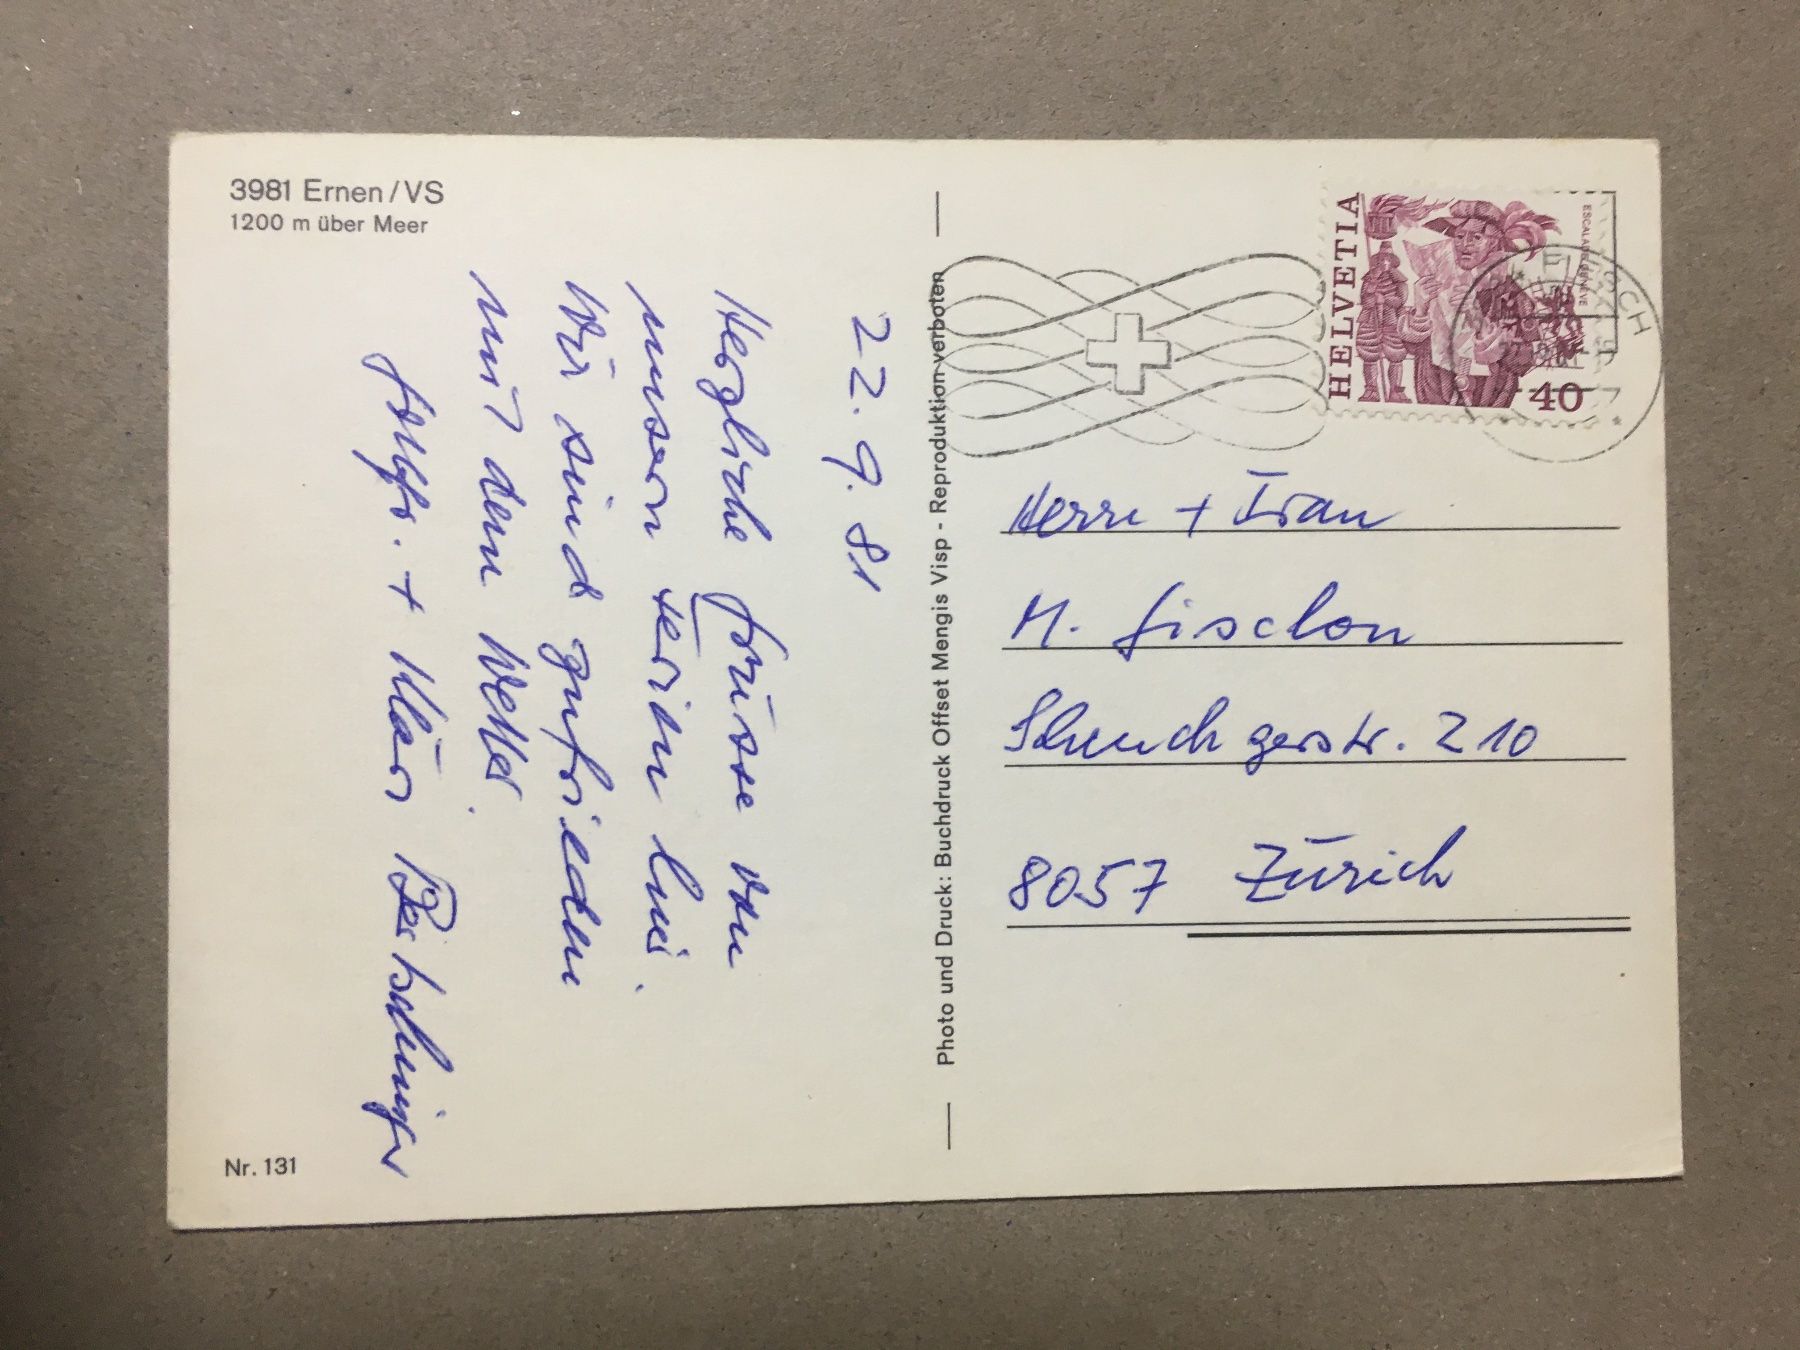 3981 Ernen/VS
1200 m über Meer
22.9.81
Herzliche Grüsse von
unsern Ferien hier.
Wir sind zufrieden
mit dem Wetter.
+ Klär
Nr. 131
Photo und Druck: Buchdruck Offset Mengis Visp - Reproduktion verboten
HELVETIA
ESCALADE GENÈVE
40
Herrn + Frau
M.
Scheuchzerstr. 210
8057 Zürich